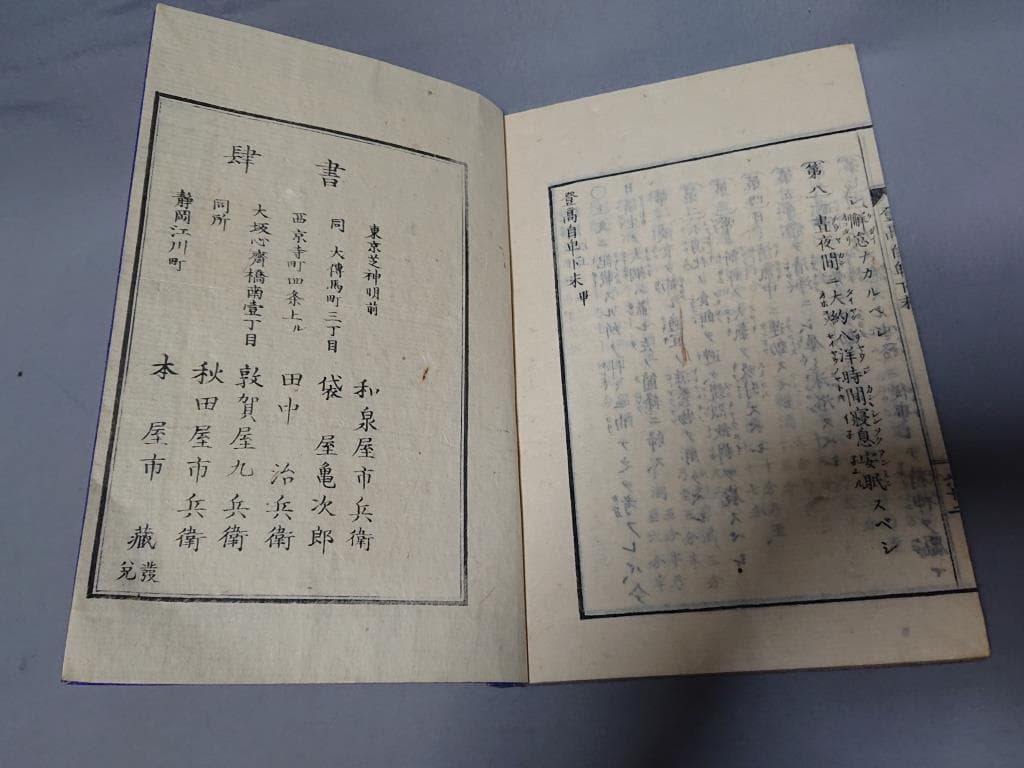 懈怠ナカルベシ
第八 昼夜間ニ大約八洋時間寝息安眠スベシ
登高自卑 末 畢
書肆
東京芝神明前 和泉屋市兵衛
同 大傳馬町三丁目 袋屋亀次郎
西京寺町四条上ル 田中治兵衛
大坂心齋橋南壹丁目 敦賀屋九兵衛
同所 秋田屋市兵衛
静岡江川町 本屋市藏
發兌